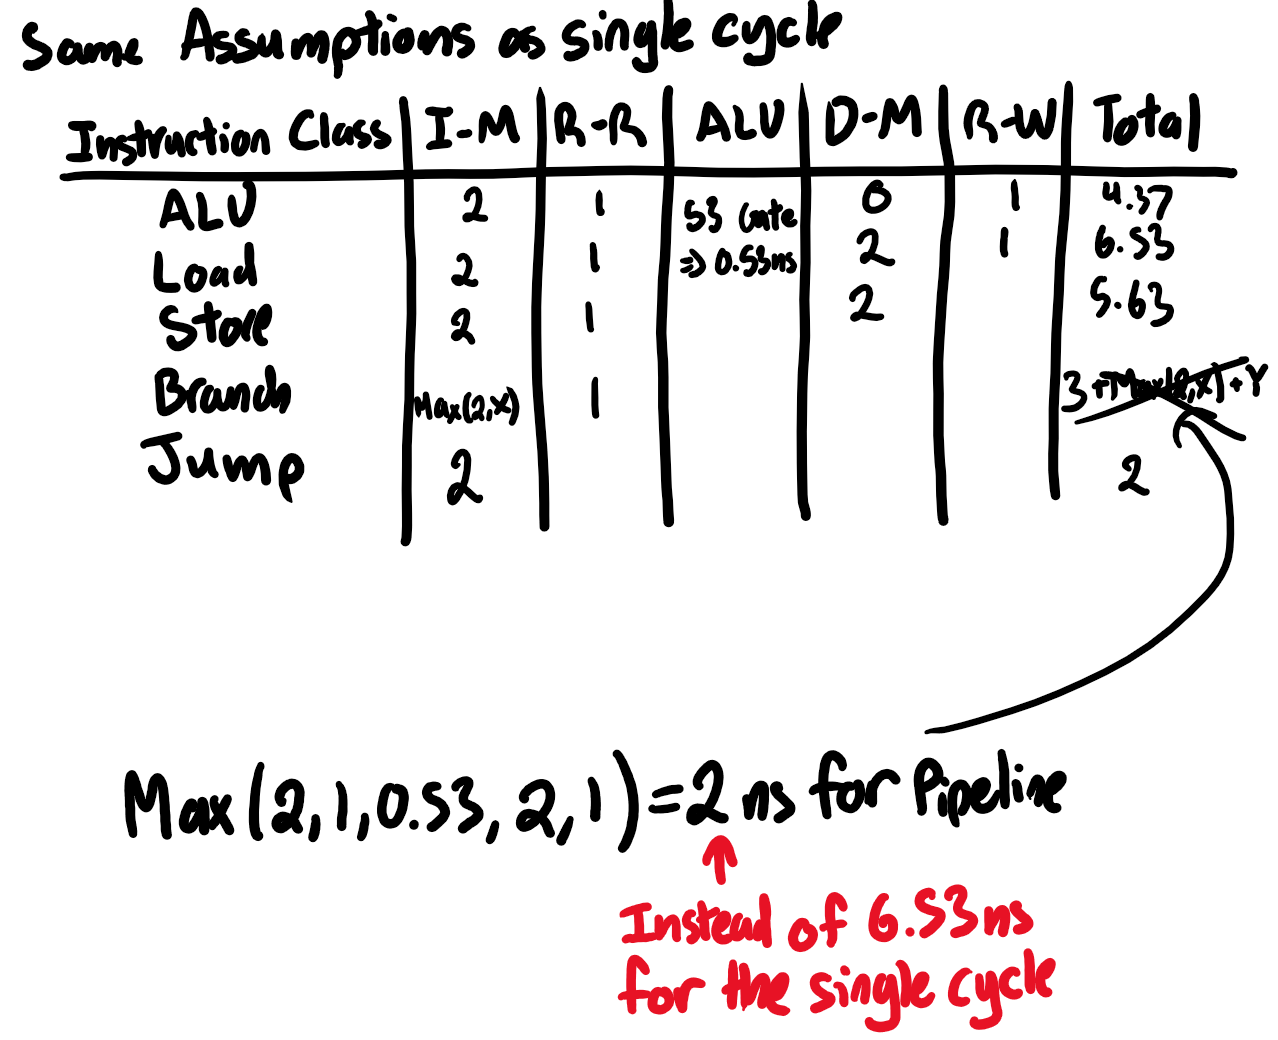 Same Assumptions as single cycle
Instruction Class I-M R-R ALU D-M R-W Total
ALU 2 1 53 Gate 0 1 4.37
Load 2 1 => 0.53ns 2 1 6.53
Store 2 1 2 5.63
Branch Max(2,X) 1 3 + Max(2,X) + Y
Jump 2 2
Max(2,1,0.53,2,1)=2 ns for Pipeline
Instead of 6.53ns
for the single cycle